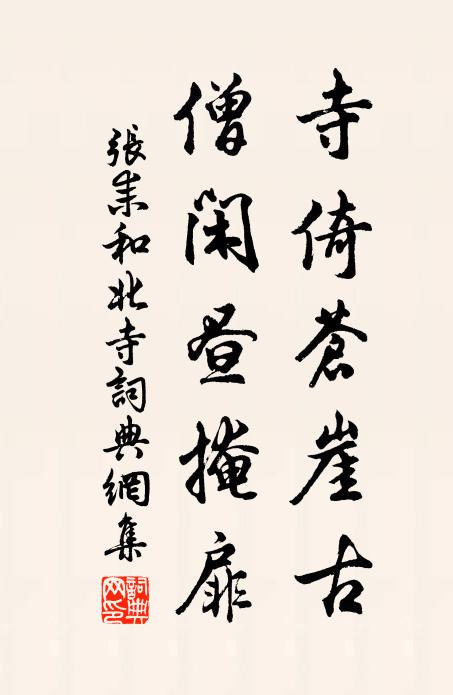 寺倚蒼崖古
僧閑昼掩扉
張耒和北寺詞典網集
詞典网印